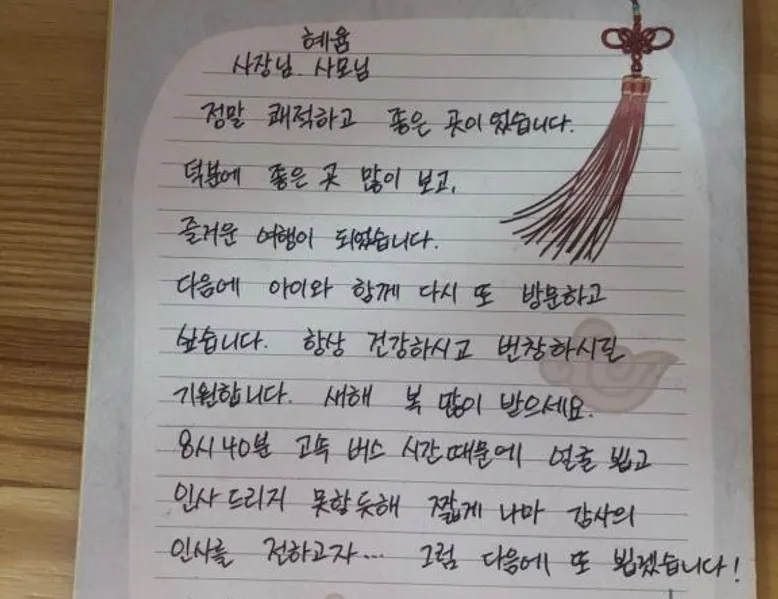 혜윰
사장님. 사모님
정말 쾌적하고 좋은 곳이었습니다.
덕분에 좋은 곳 많이 보고,
즐거운 여행이 되었습니다.
다음에 아이와 함께 다시 또 방문하고
싶습니다. 항상 건강하시고 번창하시길
기원합니다. 새해 복 많이 받으세요.
8시 40분 고속 버스 시간때문에 얼굴 뵙고
인사 드리지 못할 듯해 짧게 나마 감사의
인사를 전하고자... 그럼 다음에 또 뵙겠습니다!